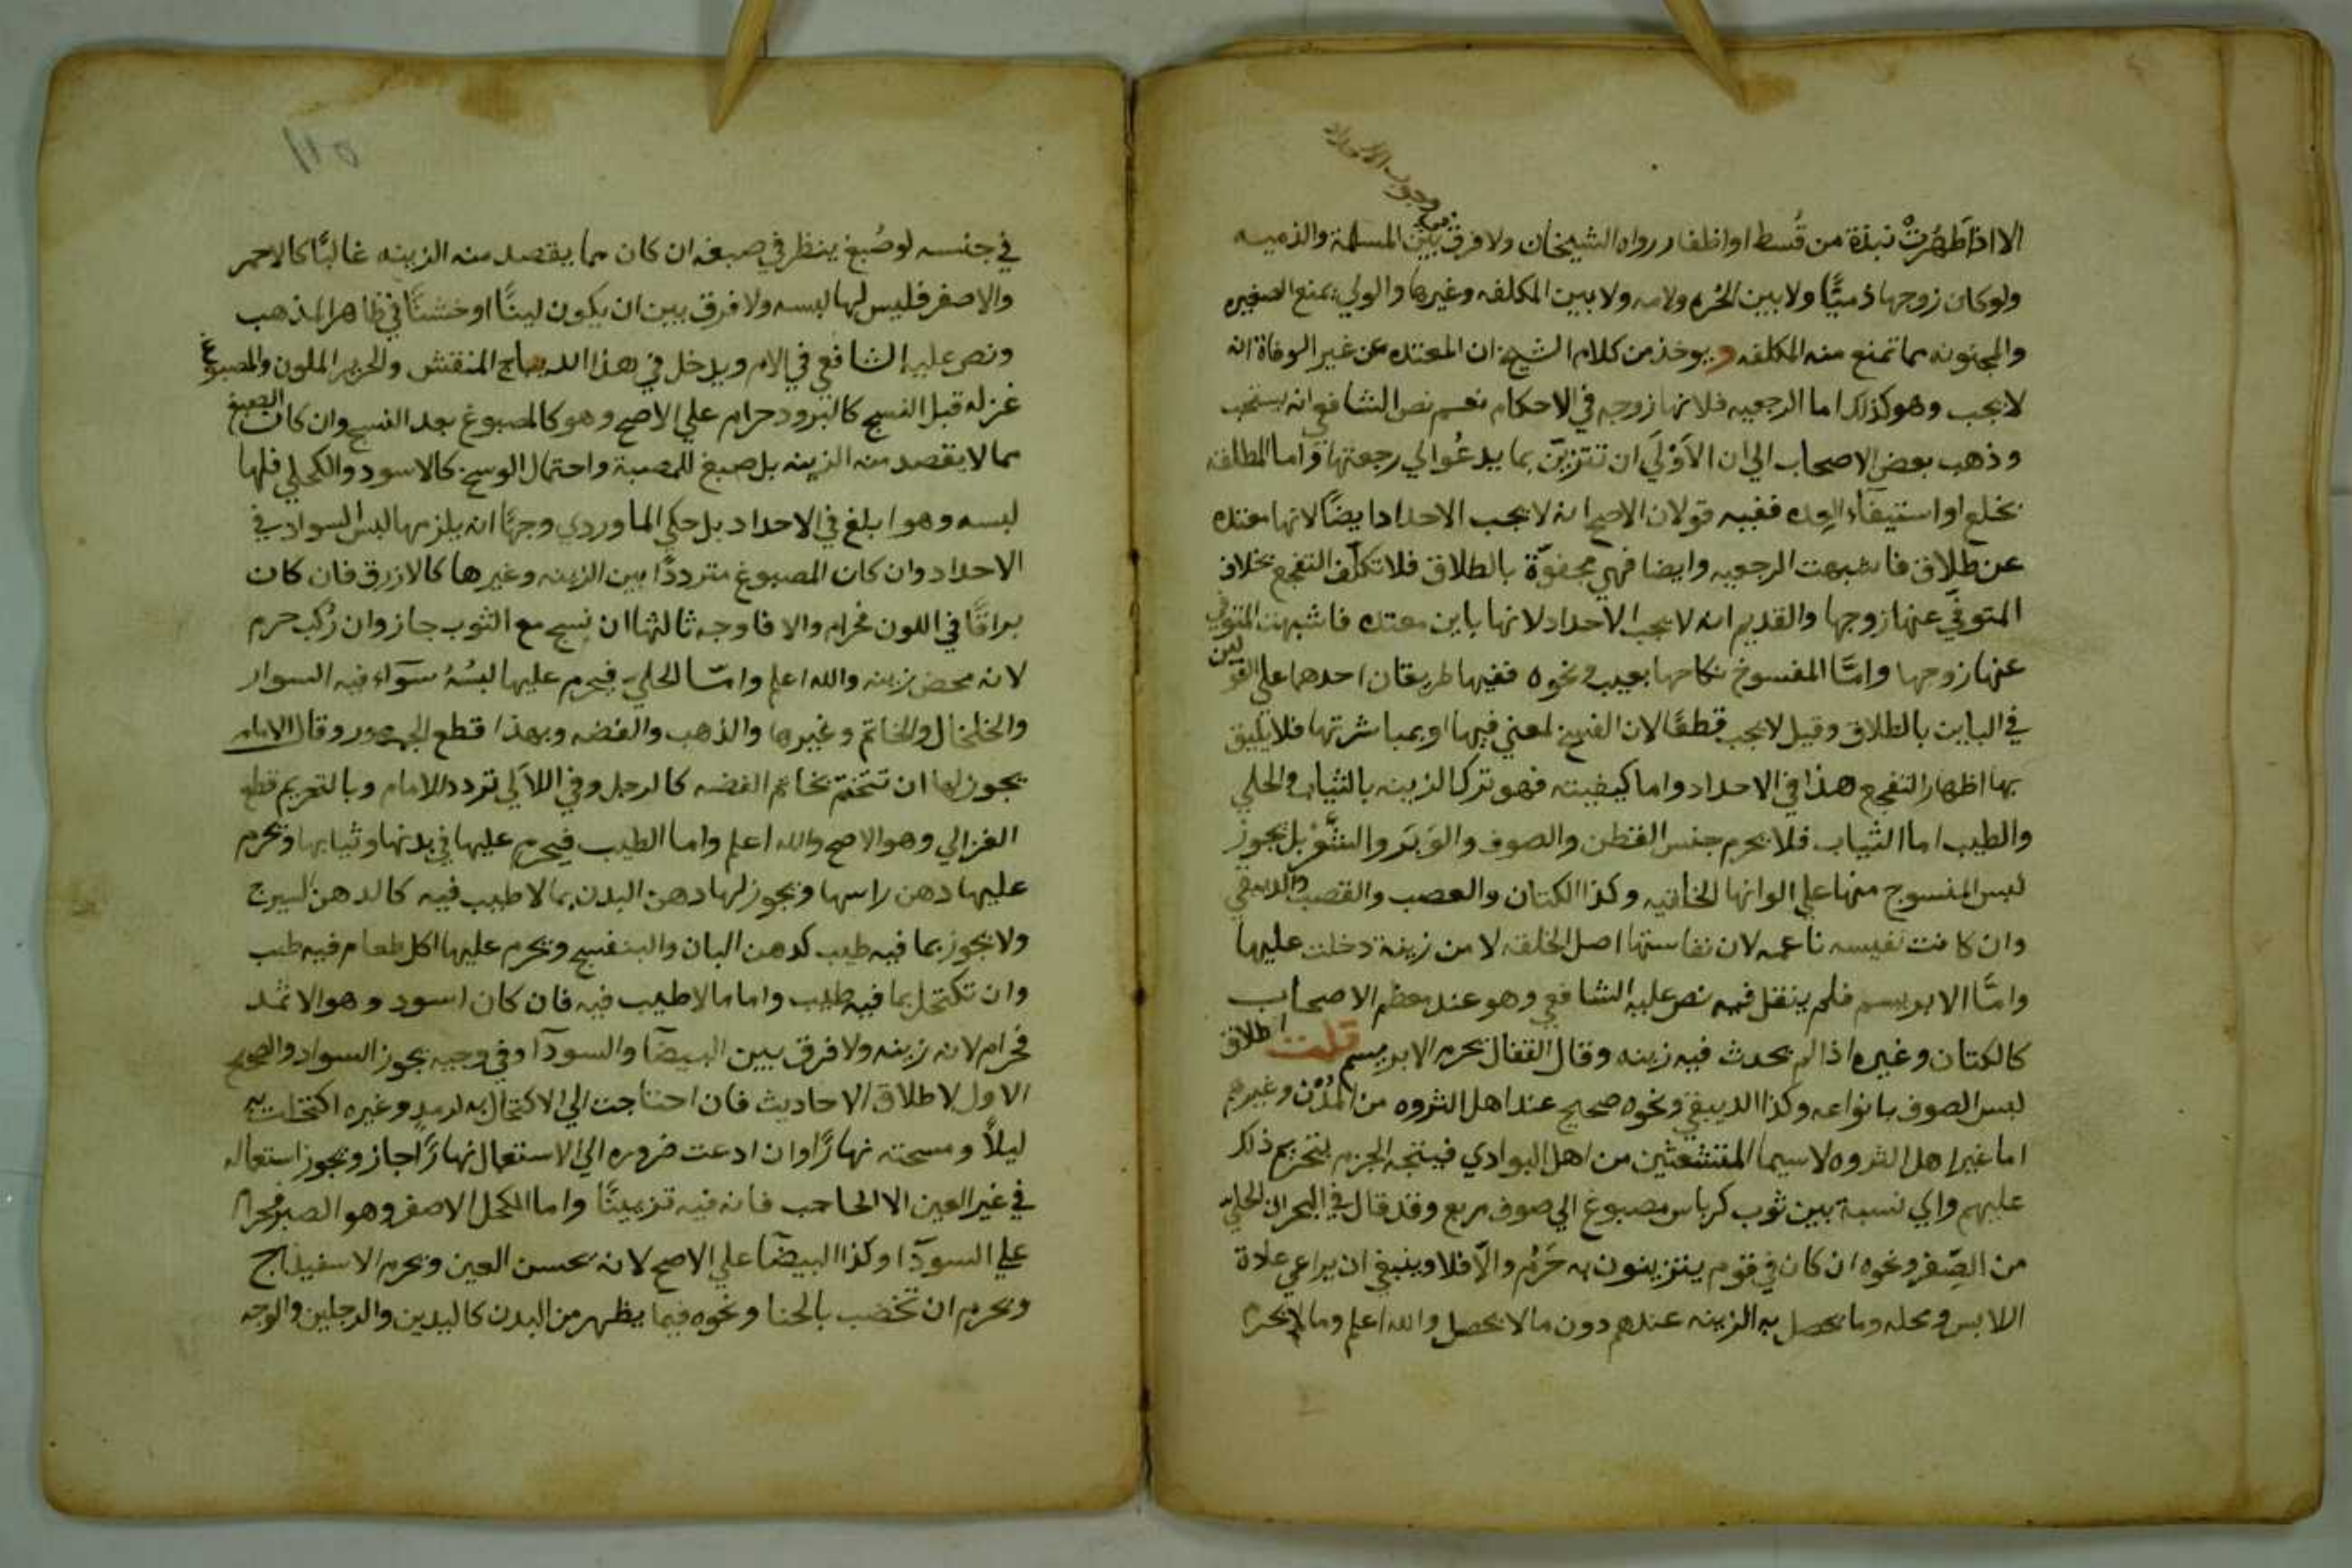 وجوب الاحداد
الا اذا طَهُرَتْ نبذة من قُسط او اظفار رواه الشيخان ولا فرق في بين المسلمة والذميه
ولو كان زوجها ذميًّا ولا بين الحُره ولامه ولا بين المكلفه وغيرها والولي يمنع الصغيره
والمجنونه مما تمنع منه المكلفه ويوخذ من كلام الشيخ ان المعتده عن غير الوفاة انه
لا يجب وهو كذلك اما الرجعيه فلانها زوجه في الاحكام نعم نص الشافعي انه يستحب
وذهب بعض الاصحاب الي ان الاَوْلَي ان تتزيّن بما يدعُوا الي رجعتها واما المطلقه
بخلع او استيفآء العده ففيه قولان الاصح انه لا يجب الاحداد ايضًا لانها معتده
عن طلاق فاشبهت الرجعيه وايضا فهي مجفوّة بالطلاق فلا تكلّف التفجع بخلاف
المتوفي عنها زوجها والقديم انه لا يجب الاحداد لانها باين معتده فاشبهت المتوفي
عنها زوجها وامّا المفسوخ نكاحها بعيب ونحوه ففيها طريقان احدهما علي القولين
في الباين بالطلاق وقيل لا يجب قطعًا لان الفسخ لمعني فيها او بمباشرتها فلا يليق
بها اظهار التفجع هذا في الاحداد واما كيفيته فهو ترك الزينه بالثياب والحلي
والطيب اما الثياب فلا يحرم جنس القطن والصوف والوَبَر والشَّعْر بل يجوز
لبس المنسوج منها علي الوانها الخلقيه وكذا الكتان والعصب والقصب والدبيقي
وان كانت نفيسه ناعمه لان نفاستها اصل الخلقه لا من زينة دخلت عليها
وامّا الابريسم فلم ينقل فيه نص عليه الشافعي وهو عند معظم الاصحاب
كالكتان وغيره اذا لم يحدث فيه زينه وقال القفال يحرم الابريسم قلت اطلاق
لبس الصوف بانواعه وكذا الدبيقي ونحوه صحيح عند اهل الثروه من المُدْن وغيرهم
اما غير اهل الثروه لاسيما المتشعثين من اهل البوادي فيتجه الجزم بتحريم ذلك
عليهم واي نسبة بين ثوب كرباس مصبوغ الي صوف مربع وقد قال في البحر ان الحليّ
من الصِّفر ونحوه ان كان في قوم يتزينون به حَرُم والاّ فلا وينبغي ان يراعي عادة
اللابس ومحله وما يحصل به الزينه عندهم دون ما لا يحصل والله اعلم وما لا يحرم
في جنسه لو صُبغ ينظر في صبغه ان كان مما يقصد منه الزينه غالبًا كالاحمر
والاصفر فليس لها لبسه ولا فرق بين ان يكون لينًا او خشنًا في ظاهر المذهب
ونص عليه الشافعي في الام ويدخل في هذا الديباج المنقش والحرير الملون والمصبوغ
غزله قبل النسج كالبرود حرام علي الاصح وهو كالمصبوغ بعد النسج وان كان الصبغ
مما لا يقصد منه الزينه بل صبغ للمصيبة واحتمال الوسخ كالاسود والكحلي فلها
لبسه وهو ابلغ في الاحداد بل حكي الماوردي وجهًا انه يلزمها لبس السواد في
الاحداد وان كان المصبوغ مترددًا بين الزينه وغيرها كالازرق فان كان
براقًا في اللون فحرام والا فاوجه ثالثها ان نسج مع الثوب جاز وان رُكب حرم
لانه محض زينه والله اعلم وامّا الحلي فيحرم عليها لبسُهُ سَوَاء فيه السوار
والخلخال والخاتم وغيرها والذهب والفضه وبهذا قطع الجمهور وقال الامام
يجوز لها ان تتختم بخاتم الفضه كالرجل وفي اللاَلي تردد للامام وبالتحريم قطع
الغزالي وهو الاصح والله اعلم واما الطيب فيحرم عليها في بدنها وثيابها ويحرم
عليها دهن راسها ويجوز لها دهن البدن بما لا طيب فيه كالدهن السيرج
ولا يجوز بما فيه طيب كدهن البان والبنفسج ويحرم عليها اكل طعام فيه طيب
وان تكتحل بما فيه طيب واما ما لا طيب فيه فان كان اسود وهو الاثمد
فحرام لانه زينه ولا فرق بين البيضا والسودآ وفي وجيه يجوز السواد والصحيح
الاول لاطلاق الاحاديث فان احتاجت الي الاكتحال به لرمدٍ وغيره اكتحلت به
ليلاً ومسحته نهارًا وان ادعت ضروره الي الاستعمال نهارًا جاز ويجوز استعماله
في غير العين الا الحاجب فانه فيه تزيينًا واما الكحل الاصفر وهو الصبر فحرام
علي السودآ وكذا البيضآ علي الاصح لانه يحسن العين ويحرم الاسفيذاج
ويحرم ان تخضب بالحنا ونحوه فيما يظهر من البدن كاليدين والرجلين والوجه